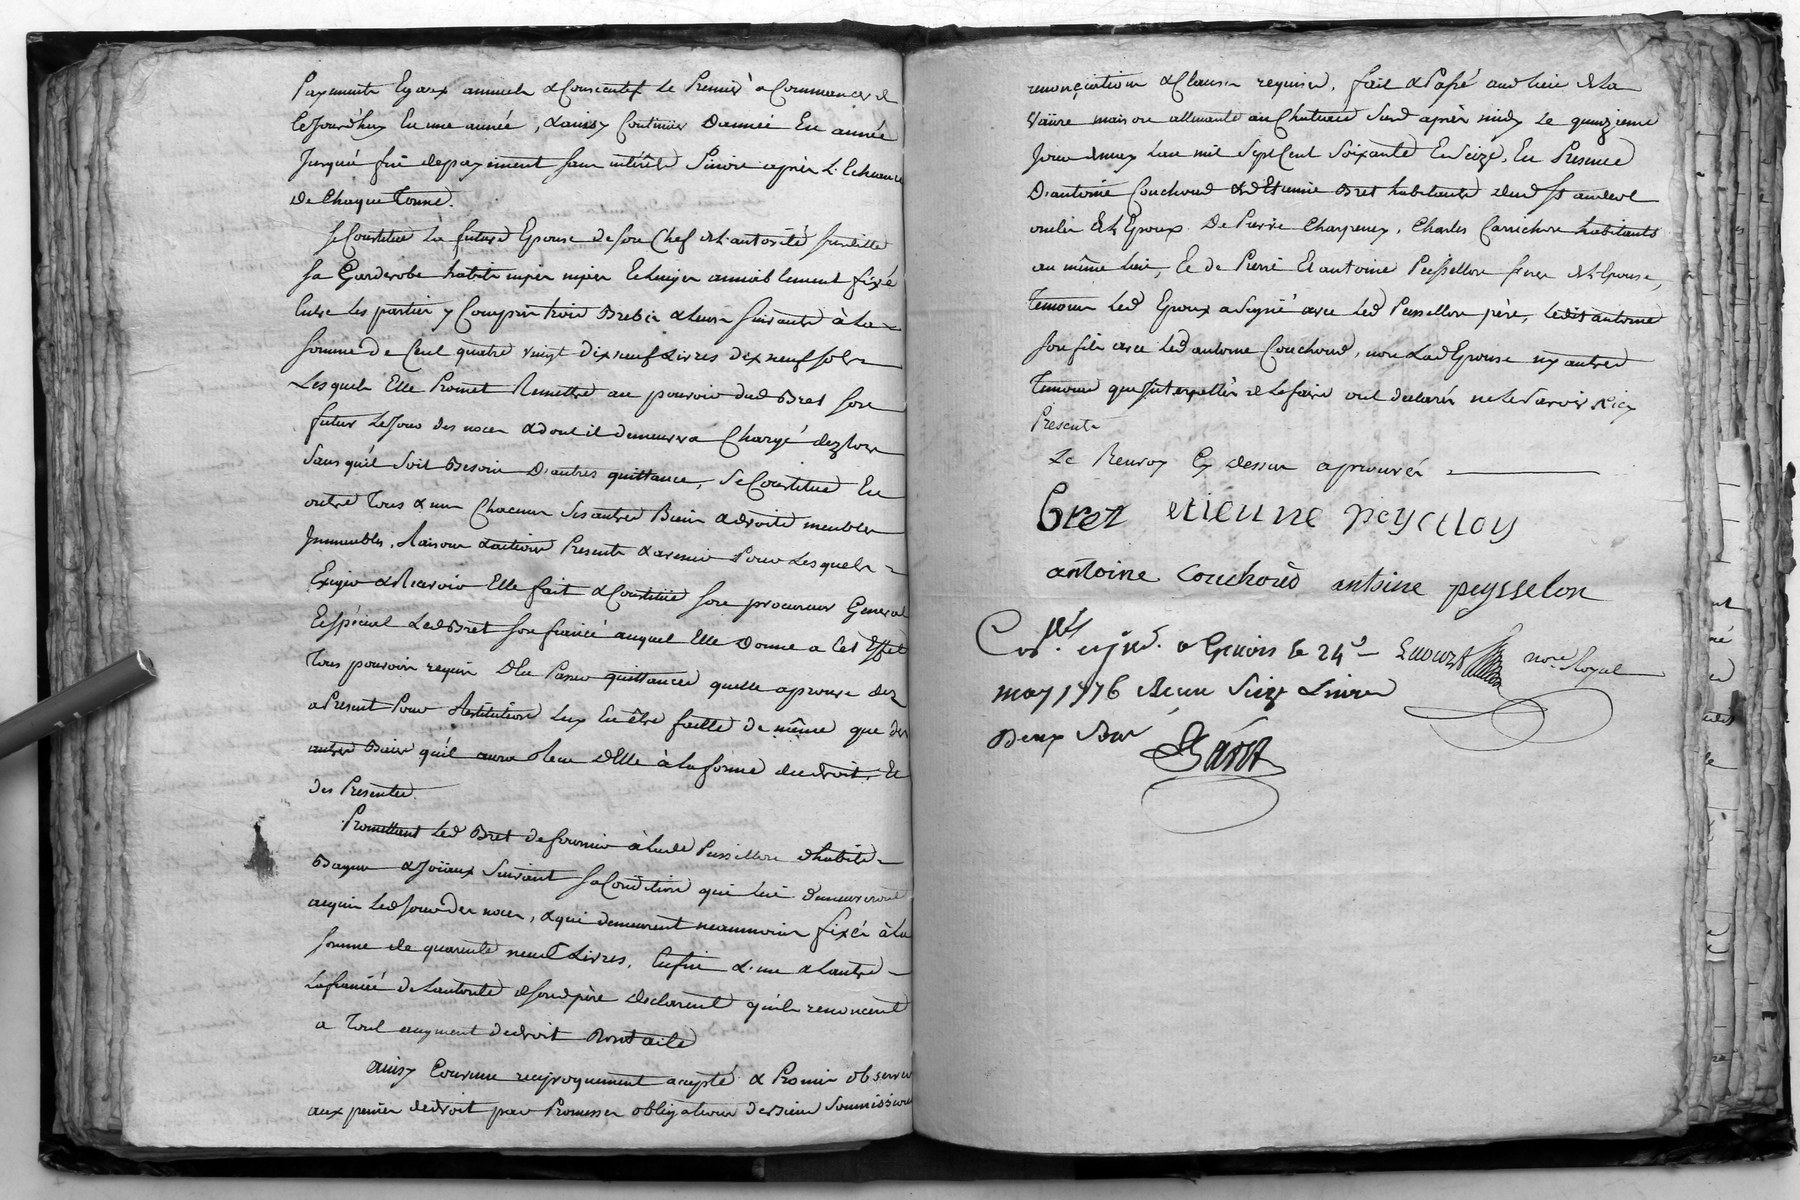 Payments Egaux annuels & Consecutifs Le Premier a Commencer de
Cejourd'huy En une année, & ainsy Continuer D'année En année
Jusqu'à fin de payement sans intérêts Sinon après L'Echeance
de Chaque Terme.
Se Constitue La future Epouse de son Chef & L'autorité
Sa Garderobe habits Et Linges amiablement fixé
Entre Les parties y Compris trois Brebis & Leurs Suivants à La
Somme de Cent quatre vingt dix neuf Livres dix neuf sols
Lesquels Elle Promet Remettre au pouvoir dud Bret son
futur Le Jour des noces & dont il demeurera Chargé dezlors
Sans qu'il Soit Besoin D'autres quittance, Se Constitue En
outre Tous & un Chacuns Ses autres Biens & droits meubles
Immeubles, Raisons & actions Presents & avenir Pour Lesquels
Exiger & Recevoir Elle fait & Constitue Son procureur General
Et Spécial Led Bret Son fiancé auquel Elle Donne a Cet Effet
Tous pouvoirs requis & En Passer quittances quelle aprouve dez
a Present Pour Restitution Luy En être faitte de même que des
autres Biens qu'il aura Reçu d'Elle à la forme du droit, Et
des Presentes.
Promettant Led Bret de fournir à lade Peissellon & habits
Bagues & Joüaux Suivant Sa Condition qui lui demeureront
acquis Led Jour des noces, & qui demeurent neanmoins fixés à La
Somme de quarente neuf Livres. Enfin L'un & Lautre
La fiancée de Lautorité de Sond père Declarent qu'ils renoncent
a Tout augment de droit & Coutume
ainsy Convenu reciproquement accepté & Promis observer
aux peines de droit par Promesses obligations de Biens Soumissions
renonçiations & Clauses requises. fait & Passé aud Lieu de La
Vaüre maison allemante au Chateau Sur après midy Le quinzieme
Jour de may L'an mil Sept Cent Soixante En Seize, En Presence
D'antoine Couchoud & d'Etienne Bret habitants dud St andeol
oncles de L'Epoux. De Pierre Charpenay, Charles habitants
au même Lieu, Et de Pierre Et antoine Peissellon freres de L'Epouse,
Temoins Led Epoux a Signé avec Led Peissellon père, Ledit antoine
Son fils avec Led antoine Couchoud, non Lad Epouse ny autres
Temoins que Interpellés de Le faire ont declarés ne le Savoir
Presents
Le Renvoy Cy dessus aprouvés
bret etienne peyselon
antoine Couchoud antoine peysselon
Con.lé a Givors le 24e not.re Royal
may 1776 Reçu Seize Livres
Deux Sols